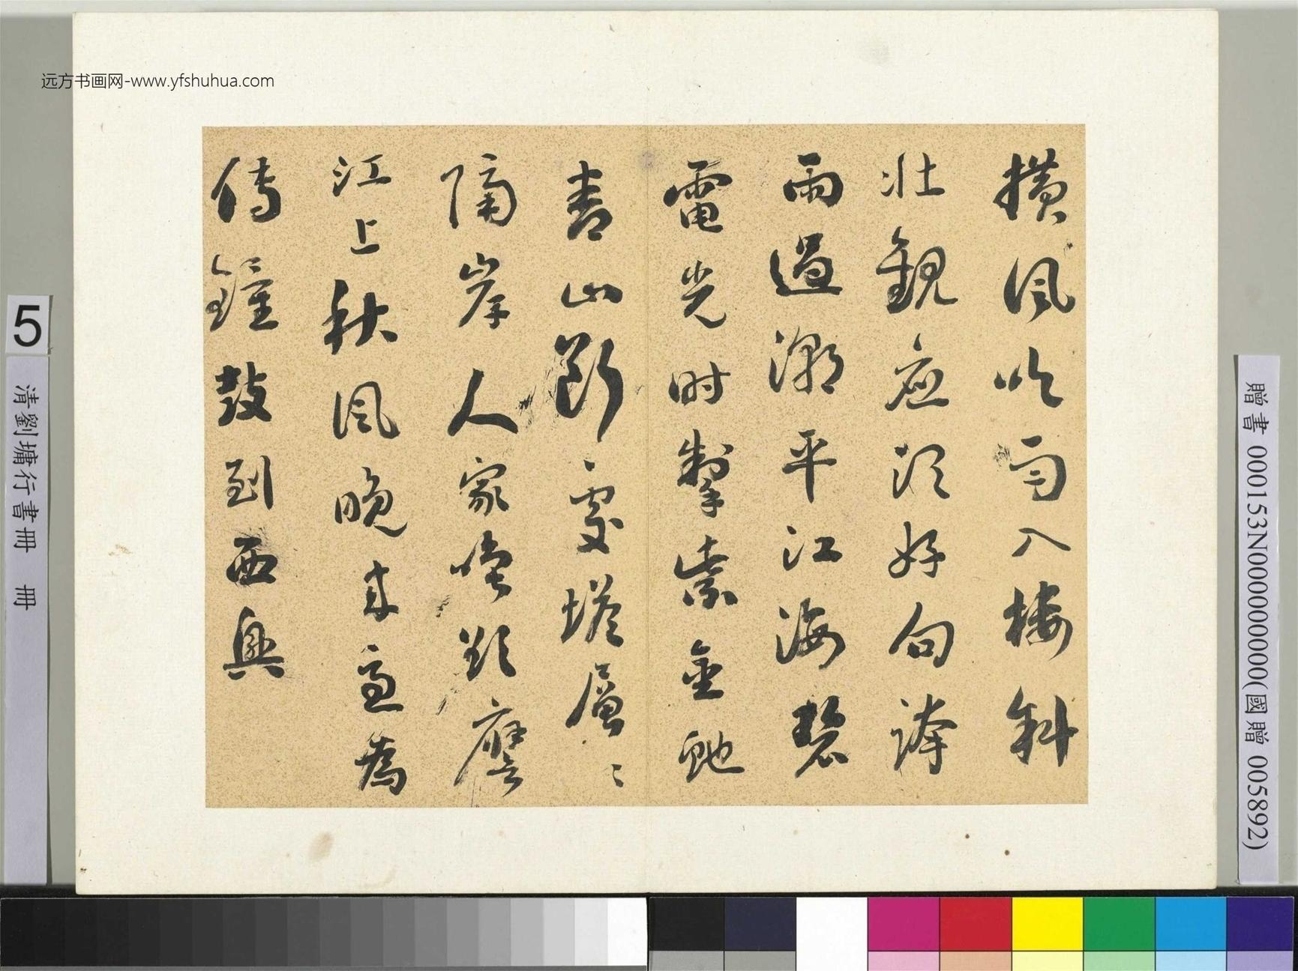 远方书画网-www.yfshuhua.com
橫風吹雨入樓斜
壯觀应須好句誇
雨過潮平江海碧
電光时掣紫金虵
青山斷處塔層〻
隔岸人家喚欲譍
江上秋風晚来急
為
傳鐘鼓到西興
5
清劉墉行書冊 冊
贈書 000153N000000000(國贈 005892)